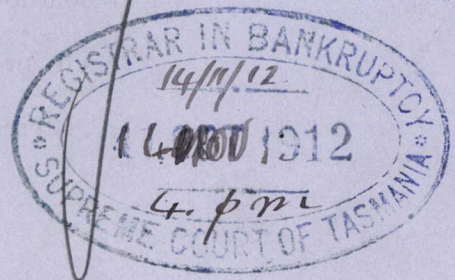 REGISTRAR IN BANKRUPTCY
14/11/12
14 1912
4. pm
SUPREME COURT OF TASMANIA